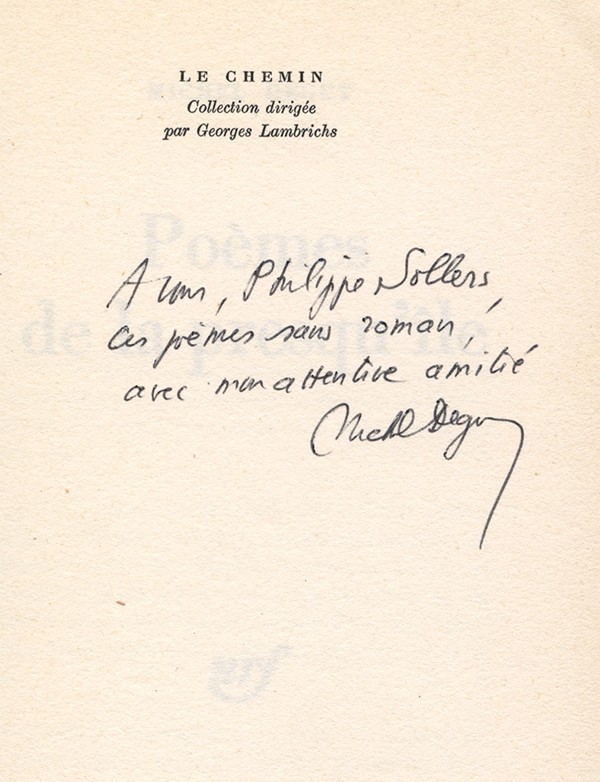 LE CHEMIN
Collection dirigée
par Georges Lambrichs
Poèmes
de la presqu'île
A vous, Philippe Sollers,
ces poèmes sans roman,
avec mon attentive amitié
Michel Deguy
nrf